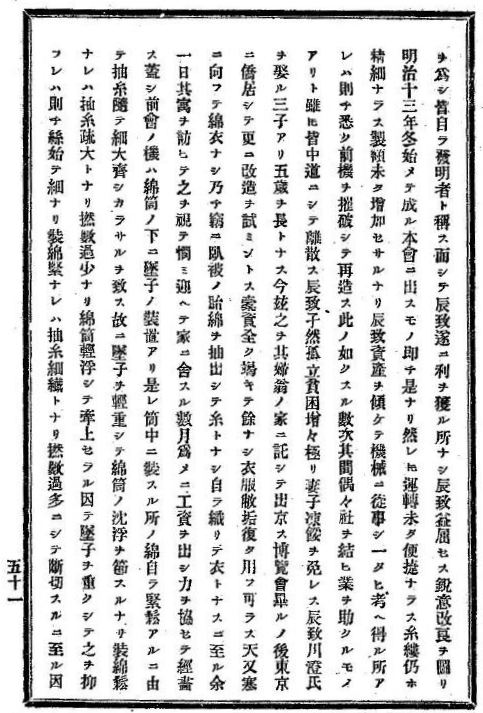 ヲ為シ皆自ラ發明者ト稱ス而シテ辰致遂ニ利ヲ獲ル所ナシ辰致益屈セス鋭意改良ヲ圖リ
明治十三年冬始メテ成ル本會ニ出スモノ即チ是ナリ然レヒ運轉未タ便捷ナラス糸縷仍ホ
精細ナラス製額未タ増加セサルナリ辰致資產ヲ傾ケテ機械ニ從事シ一タヒ考ヘ得ル所ア
レハ則チ悉ク前機ヲ摧破シテ再造ス此ノ如クスル數次其間偶々社ヲ結ヒ業ヲ助クルモノ
アリト雖ヒ皆中道ニシテ離散ス辰致孑然孤立貧困增々極リ妻子凍餒ヲ免レス辰致川澄氏
ヲ娶ル三子アリ五歲ヲ長トナス今玆之ヲ其婦翁ノ家ニ託シテ出京ス博覽會畢ルノ後東京
ニ僑居シテ更ニ改造ヲ試ミントス橐資全ク竭キテ餘ナシ衣服敝垢復タ用フ可ラス天又寒
ニ向フテ綿衣ナシ乃チ竊ニ臥被ノ貽綿ヲ抽出シテ糸トナシ自ラ織リテ衣トナスニ至ル余
一日其寓ヲ訪ヒテ之ヲ視テ憫ミ迎ヘテ家ニ舍スル數月爲メニ工資ヲ出シ力ヲ協セテ經畫
ス蓋シ前會ノ機ハ綿筒ノ下ニ墜子ノ裝置アリ是レ筒中ニ裝スル所ノ綿自ラ緊鬆アルニ由
テ抽糸隨テ細大齊シカラサルヲ致ス故ニ墜子ヲ輕重シテ綿筒ノ沈浮ヲ節スルナリ裝綿鬆
ナレハ抽糸疏大トナリ撚數過少ナリ綿筒輕浮シテ牽上セラル因テ墜子ヲ重クシテ之ヲ抑
フレハ則チ絲始テ細ナリ裝綿緊ナレハ抽糸細纖トナリ撚數過多ニシテ斷切スルニ至ル因
五十一